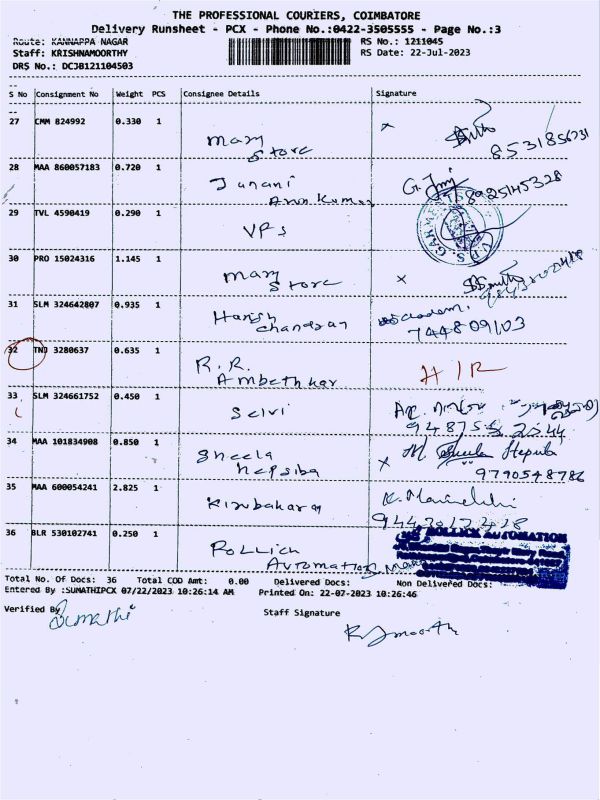 THE PROFESSIONAL COURIERS, COIMBATORE
Delivery Runsheet - PCX - Phone No.:0422-3505555 - Page No.:3
Route: KANNAPPA NAGAR RS No.: 1211045
Staff: KRISHNAMOORTHY RS Date: 22-Jul-2023
DRS No.: DCJB121104503
S No Consignment No Weight PCS Consignee Details Signature
27 CMM 824992 0.330 1
Mary Store
8531856731
28 MAA 860057183 0.720 1
Janani
Arun Kumar
8925145328
29 TVL 4590419 0.290 1
VPS
30 PRO 15024316 1.145 1
Mary Store
31 SLM 324642807 0.935 1
Harish chandran
744809103
32 TND 3280637 0.635 1
R.R. Ambethkar
33 SLM 324661752 0.450 1
Selvi
34 MAA 101834908 0.850 1
Sheela hepsiba
9790548786
35 MAA 600054241 2.825 1
Kirubakaran
36 BLR 530102741 0.250 1
Pollich
Automation
Total No. Of Docs: 36 Total COD Amt: 0.00 Delivered Docs: Non Delivered Docs:
Entered By :SUMATHIPCX 07/22/2023 10:26:14 AM Printed On: 22-07-2023 10:26:46
Verified By Staff Signature
Sumathi